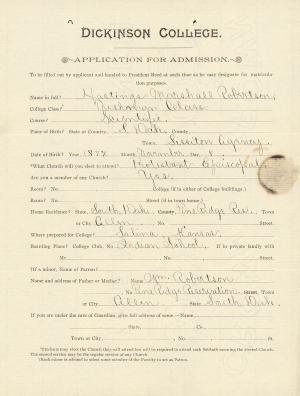 DICKINSON COLLEGE.
APPLICATION FOR ADMISSION.
To be filled out by applicant and handed to President Reed at such time as he may designate for matriculation purposes.
Name in full? Hastings Marshall Robertson,
College Class? Freshman Class
Course? Scientific
Place of Birth? State or Country, S. Dak. County,
Town Sisseton Agency
Date of Birth? Year, 1877 Month November Day 8.
*What Church will you elect to attend? Protestant Episcopal
Are you a member of any Church? Yes.
Room? No. College (if in either of College buildings.)
Room? No. Street (if in town home.)
Home Residence? State, South Dak. County, Pine Ridge Res. Town
or City, Allen No. Street.
Where prepared for College? Salina, Kansas.
Boarding Place? College Club, No. Indian School. If in private family with
Mr. No. Street.
†(If a minor, Name of Patron?
Name and address of Father or Mother? Wm. Robertson
No. Pine Ridge Reservation Street, Town
or City, Allen State, South Dak.
If you are under the care of Guardian, give full address of same.—Name,
State, Co.
Town or City, No. St.
*Students may elect the Church they will attend but will be required to attend each Sabbath morning the elected Church.
The second service may be the regular service of any Church.
†Each minor is advised to select some member of the Faculty to act as Patron.